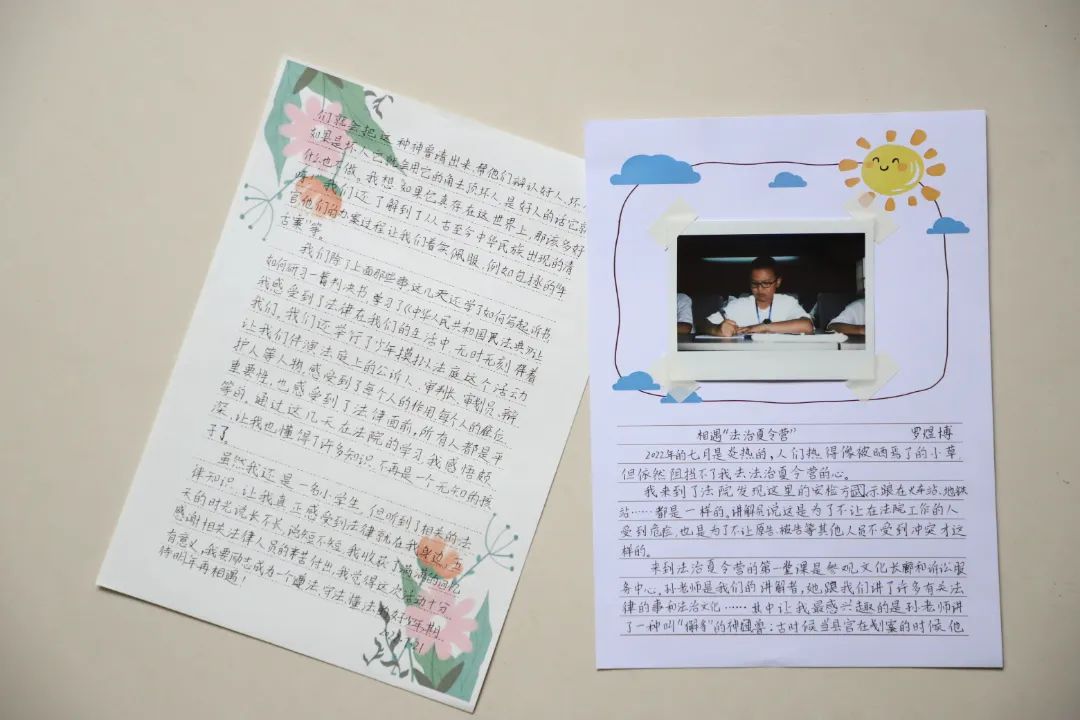 相遇“法治夏令营” 罗煜博
2022年的七月是炎热的,人们热得像被晒蔫了的小草,
但依然阻挡不了我去法治夏令营的心。
我来到了法院发现这里的安检方因示跟在火车站、地铁
站……都是一样的。讲解员说这是为了不让在法院工作的人
受到危险,也是为了不让原告、被告等其他人员不受到冲突才这
样的。
来到法治夏令营的第一堂课是参观文化长廊和诉讼服
务中心,孙老师是我们的讲解者,她跟我们讲了许多有关法
律的事和法治文化……其中让我最感兴趣的是孙老师讲
了一种叫“獬豸”的神兽:古时候当县官在划案的时候,他
们就会把这种神兽请出来,帮他们辩认好人、坏人
如果是坏人它就会用它的角去顶坏人,是好人的话它就
什么也不做。我想如果它真存在这世界上,那该多好
呀!我们还了解到了从古至今中华民族出现的清
官他们的办案过程让我们看实佩服,例如包拯的牛
古案”等。
我们除了上面那些事这几天还学了如何写起诉书,
如何研习一篇判决书,学习了《中华人民共和国民法典》让
我感受到了法律在我们的生活中,无时无刻伴着
我们。我们还举行了少年模拟法庭这个活动
让我们伴演法庭上的公诉人、审判长、审判员、辩
护人等人物,感受到了每个人的作用,每个人的岗位
重要性,也感受到了法律面前,所有人都是平
等的。通过这几天在法院的学习我感悟颇
深,让我也懂得了许多知识,不再是一个无知的孩
子了。
虽然我还是一名小学生,但听到了相关的法
律知识,让我真正感受到法律就在我身边,五
天的时光说长不长,说短不短,我收获了满满的回忆
感谢相关法律人员的辛苦付出,我觉得这次活动十分
有意义,我要励志成为一个尊法,守法,懂法的好少年,期
待明年再相遇!